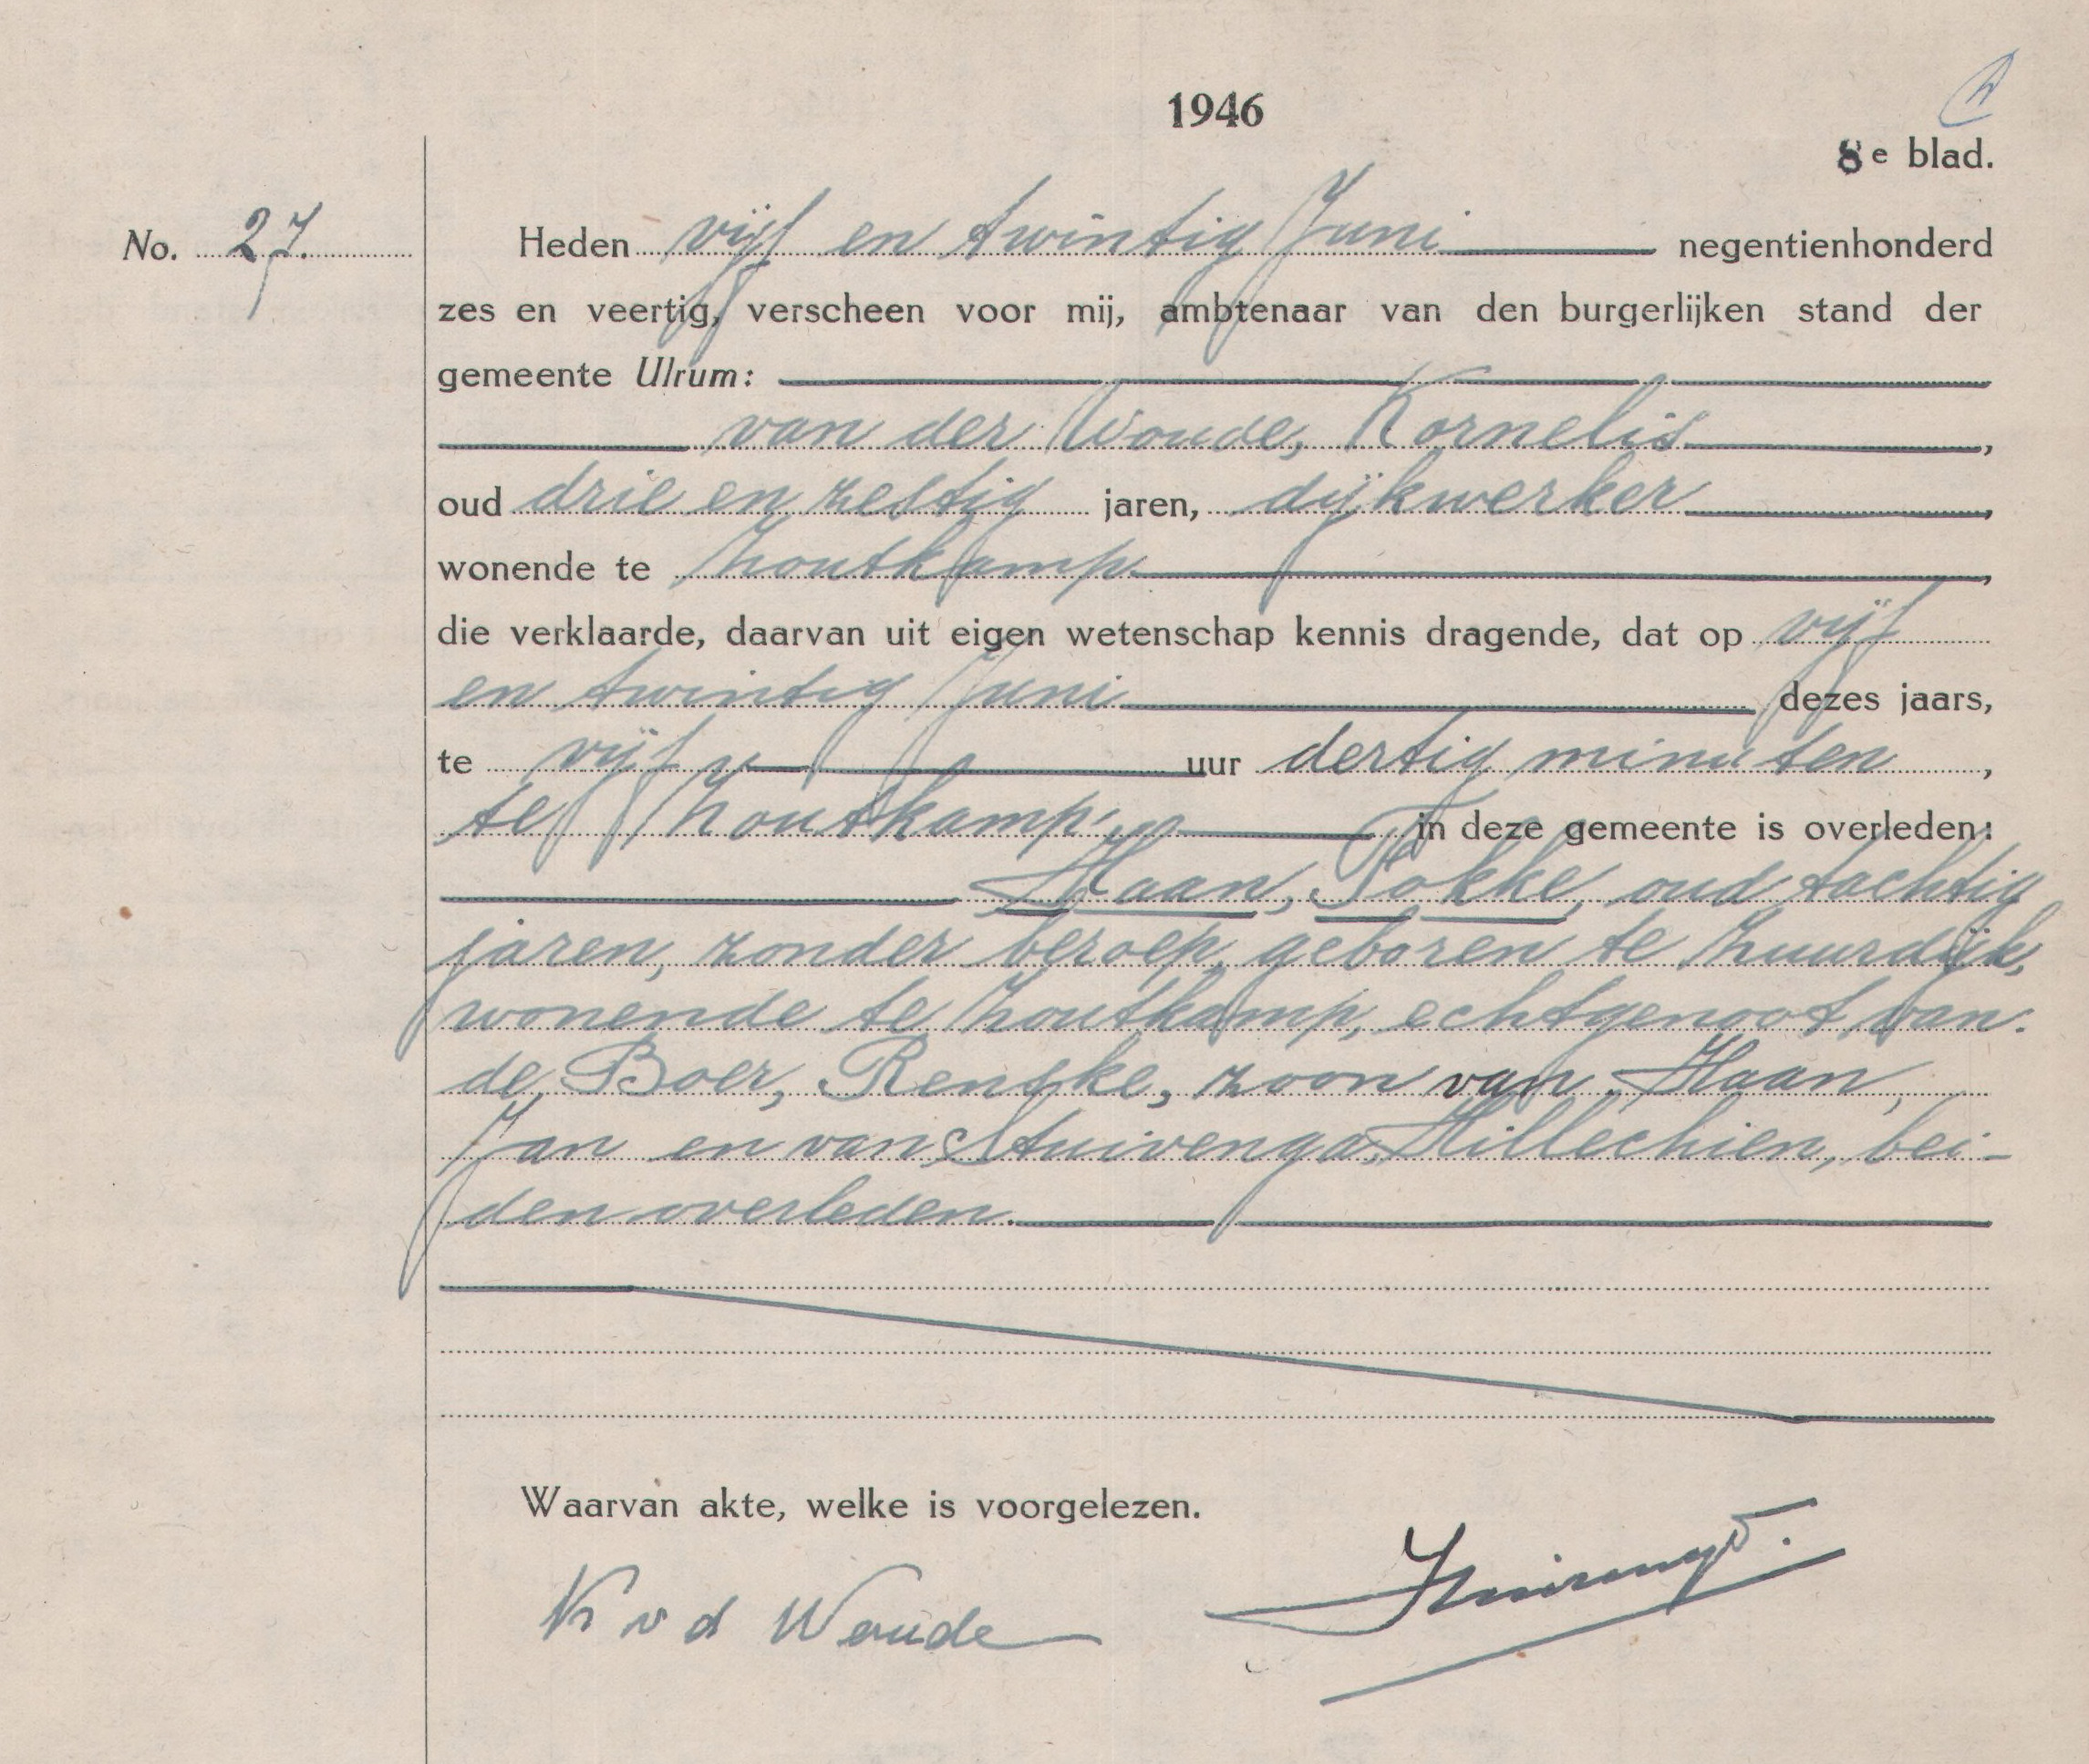 1946
8e blad.
No. 27.
Heden vijf en twintig Juni negentienhonderd
zes en veertig, verscheen voor mij, ambtenaar van den burgerlijken stand der
gemeente Ulrum:
van der Woude, Kornelis,
oud drie en zestig jaren, dijkwerker,
wonende te Zoutkamp,
die verklaarde, daarvan uit eigen wetenschap kennis dragende, dat op vijf
en twintig Juni dezes jaars,
te vijf uur dertig minuten,
te Zoutkamp, in deze gemeente is overleden:
Haan, Fokke, oud tachtig
jaren, zonder beroep, geboren te Zuurdijk,
wonende te Zoutkamp, echtgenoot van
de Boer, Renske, zoon van Haan,
Jan en van Stuivenga, Hillechien, bei-
den overleden.
Waarvan akte, welke is voorgelezen.
K v d Woude